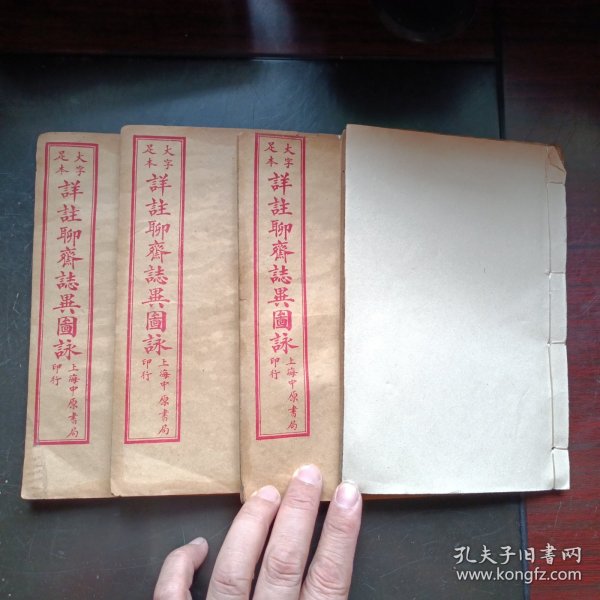 大字
足本
詳註聊齋誌異圖詠
上海中原書局
印行
大字
足本
詳註聊齋誌異圖詠
上海中原書局
印行
大字
足本
詳註聊齋誌異圖詠
上海中原書局
印行
孔夫子旧书网
www.kongfz.com